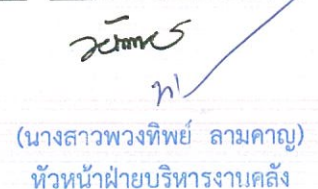 (นางสาวพวงทิพย์ ลามคาญ)
หัวหน้าฝ่ายบริหารงานคลัง